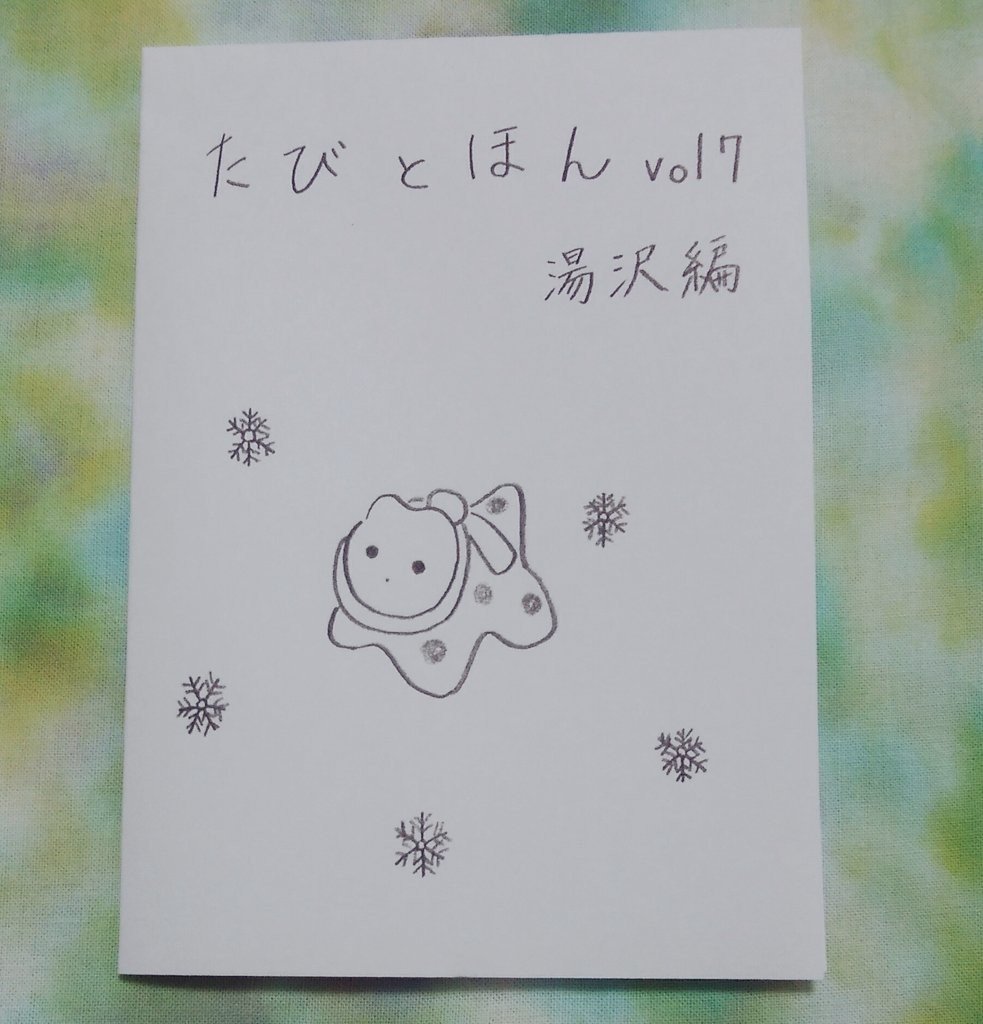 たびとほん vol7
湯沢編